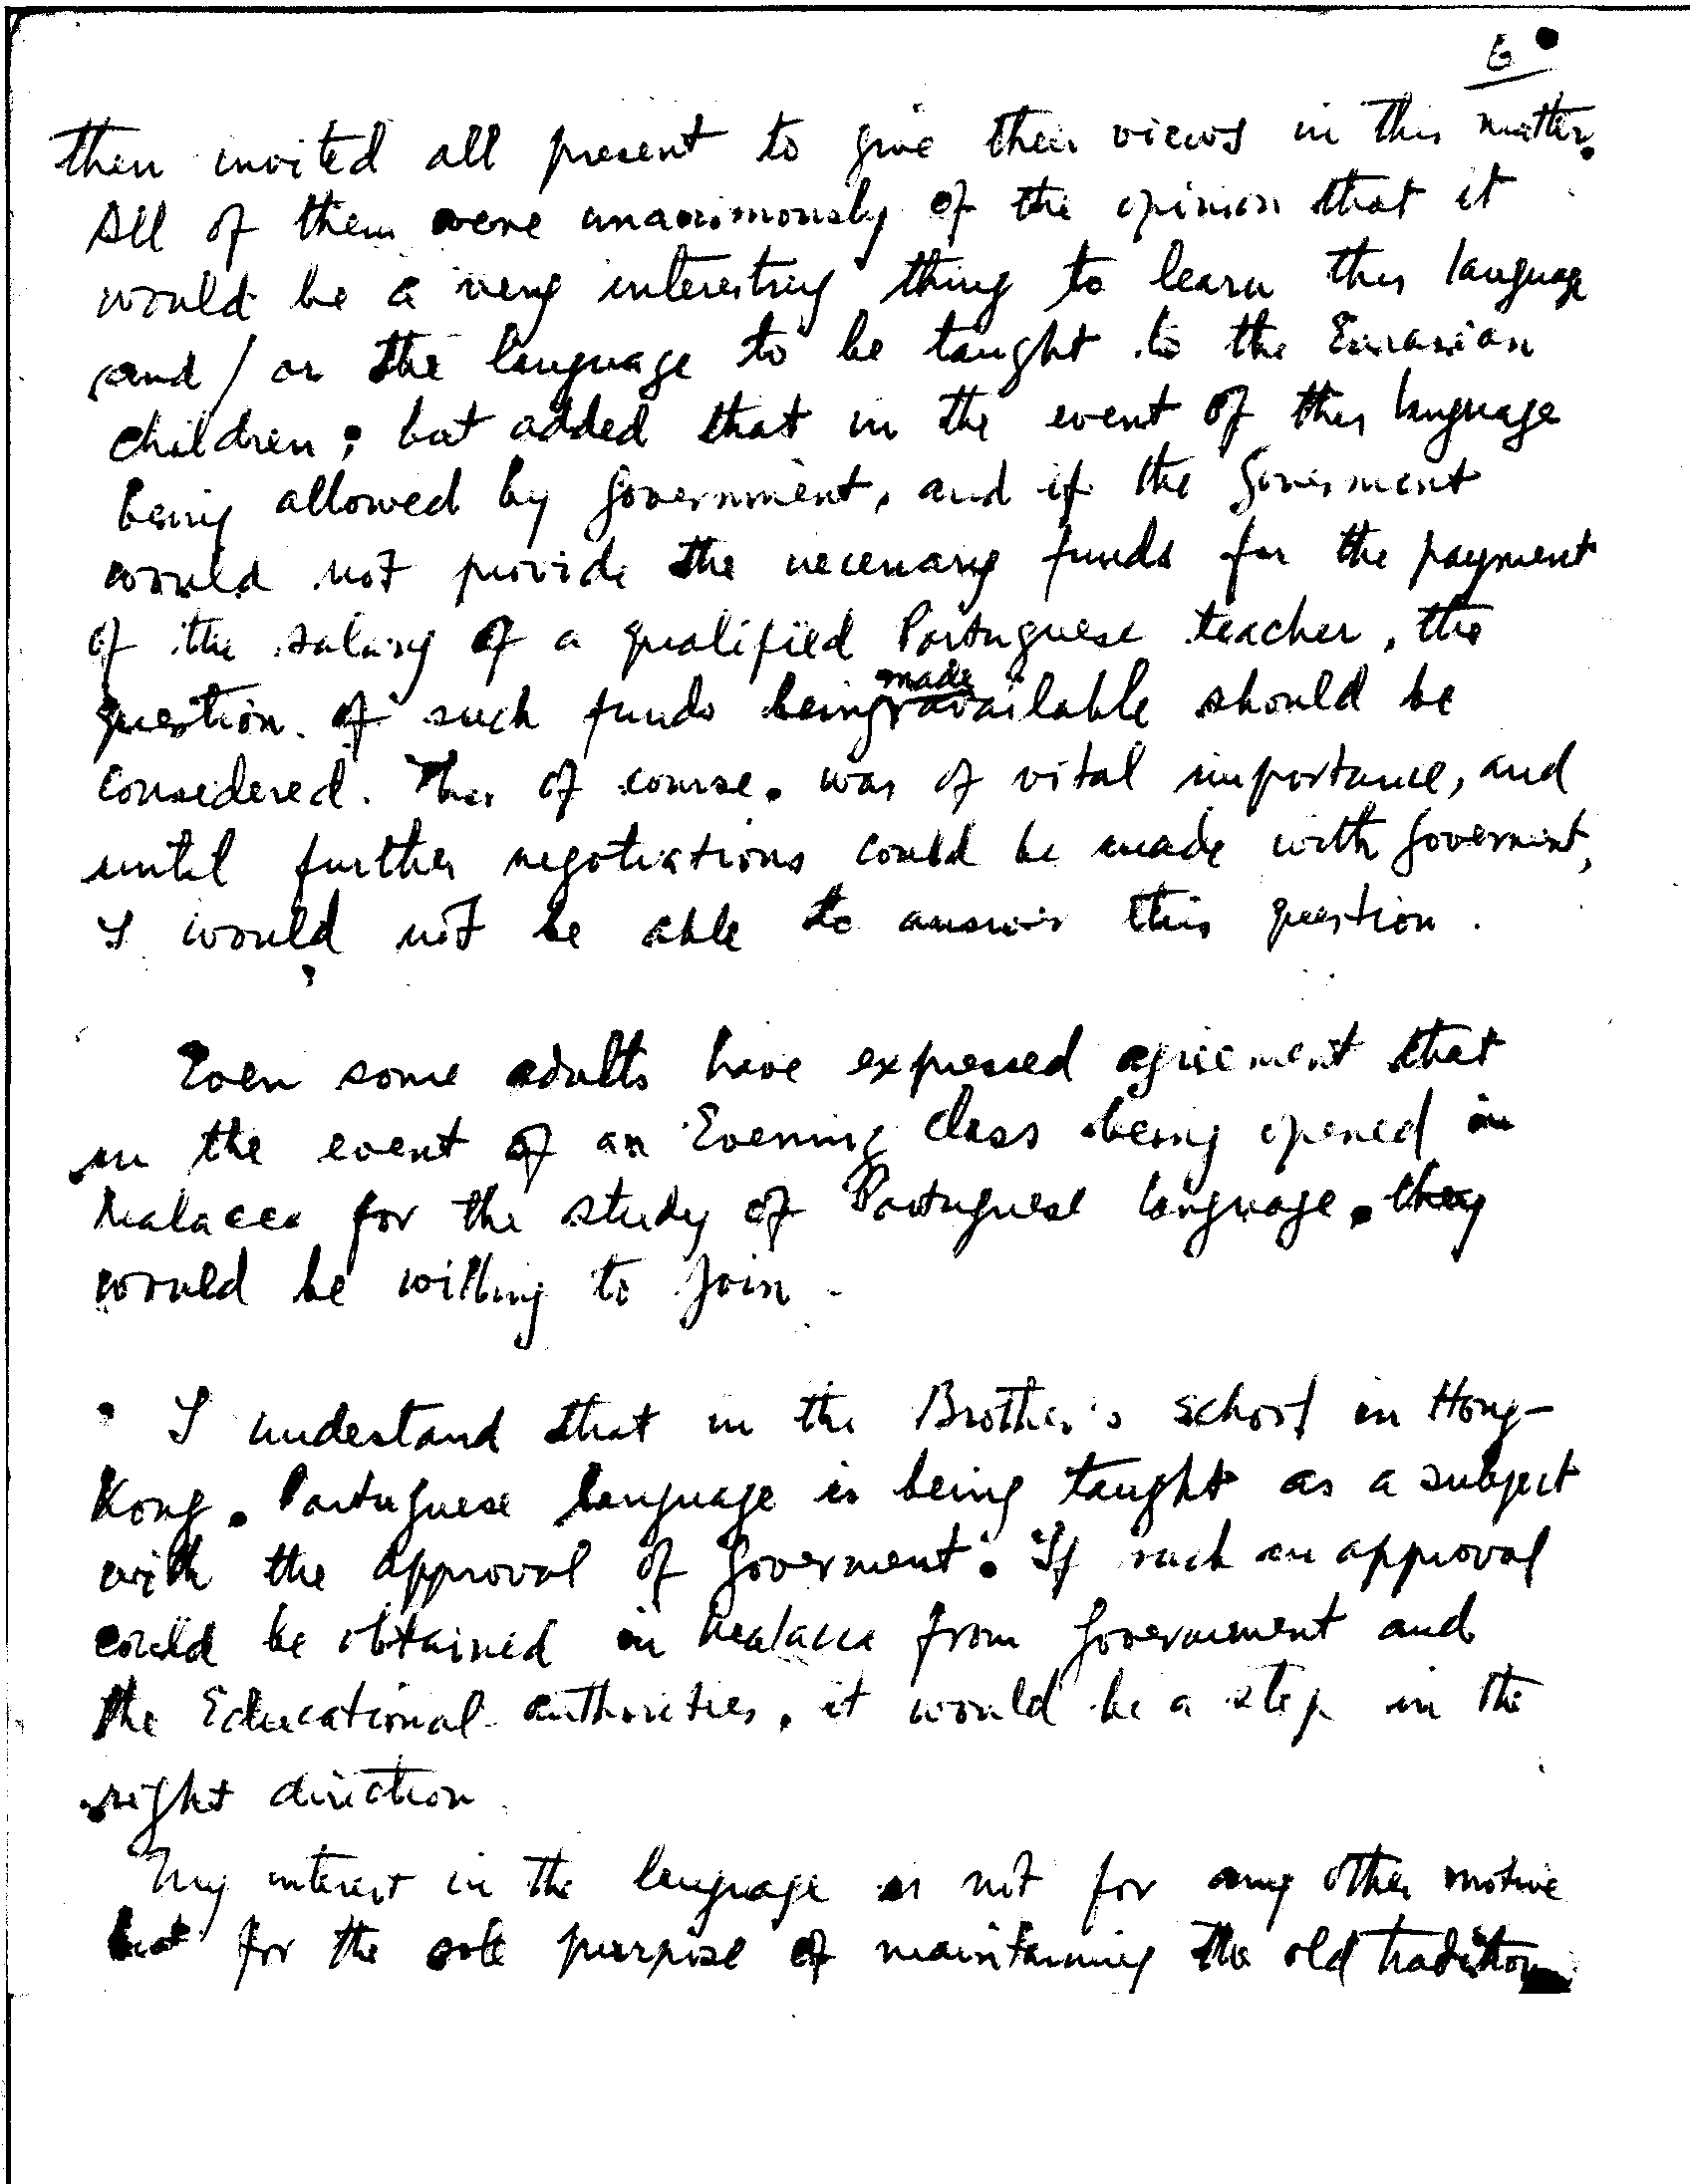 6
then invited all present to give their views in this matter.
All of them were unanimously of the opinion that it
would be a very interesting thing to learn this language
and / or the language to be taught to the Eurasian
children; but added that in the event of this language
being allowed by Government, and if the Government
would not provide the necessary funds for the payment
of the salary of a qualified Portuguese teacher, the
question of such funds being made available should be
considered. This of course, was of vital importance, and
until further negotiations could be made with Government,
I would not be able to answer this question.
Even some adults have expressed agreement that
in the event of an Evening Class being opened in
Malacca for the study of Portuguese language, they
would be willing to join.
I understand that in the Brother's school in Hong-
Kong, Portuguese language is being taught as a subject
with the approval of Goverment. If such an approval
could be obtained in Malacca from Government and
the Educational authorities, it would be a step in the
right direction.
My interest in the language is not for any other motive
but for the sole purpose of maintaining the old tradition